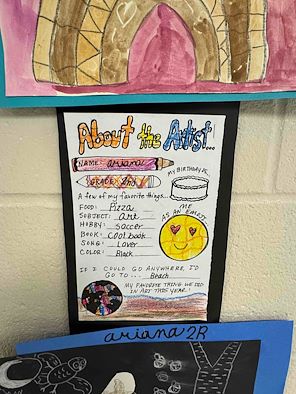 About the Artist...
NAME: ariana
GRADE: 2nd
MY BIRTHDAY IS
A few of my favorite things...
FOOD: Pizza
SUBJECT: art
HOBBY: soccer
BOOK: Cool book
SONG: Lover
COLOR: Black
ME
AS AN EMOJI
IF I COULD GO ANYWHERE, I'D
GO TO... Beach
MY FAVORITE THING WE DID
IN ART THIS YEAR:
ariana 2R